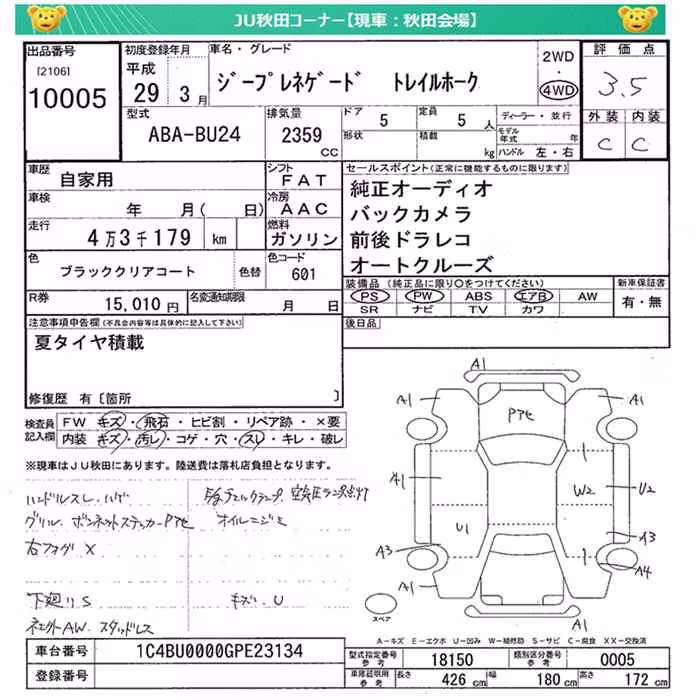 JU秋田コーナー【現車：秋田会場】
出品番号
[2106]
10005
初度登録年月
平成
29 3月
車名・グレード
ジープレネゲード トレイルホーク
2WD
4WD
評価点
3.5
型式
ABA-BU24
排気量
2359
CC
ドア
5
定員
5人
形状
積載
kg
ディーラー・並行
モデル年式
年
ハンドル 左・右
外装 内装
C C
車歴
自家用
シフト
FAT
車検
年 月( 日)
冷房
AAC
走行
4万3千179 km
燃料
ガソリン
色
ブラッククリアコート
色替
色コード
601
R券
15,010円
名変通知期限
月 日
セールスポイント(正常に機能するものに限ります)
純正オーディオ
バックカメラ
前後ドラレコ
オートクルーズ
装備品(純正品に限り○をつけてください)
PS PW ABS エアB AW
SR ナビ TV カワ
新車保証書
有・無
後日品
注意事項申告欄(不具合内容等は具体的に記入して下さい)
夏タイヤ積載
修復歴 有〔箇所 〕
検査員
記入欄
FW キズ・飛石・ヒビ割・リペア跡・×要
内装 キズ・汚レ・コゲ・穴・スレ・キレ・破レ
※現車はJU秋田にあります。陸送費は落札店負担となります。
ハンドルスレ、ハゲ
エンジンチェックランプ、空気圧ランプ点灯
グリル、ボンネットステッカーPアセ
オイルニジミ
右フォグ X
下廻りS
キズ、U
ネジ外AW、スタッドレス
A1
A1
A1
Pアセ
A1
1
W2
U2
U1
A3
A3
1
A4
A1
A1
スペア
A－キズ E－エクボ U－凹み W－補修跡 S－サビ C－腐食 XX－交換済
車台番号
1C4BU0000GPE23134
登録番号
型式指定番号
参考
18150
類別区分番号
参考
0005
車庫証明用
参考
長さ
426 cm
幅
180 cm
高さ
172 cm